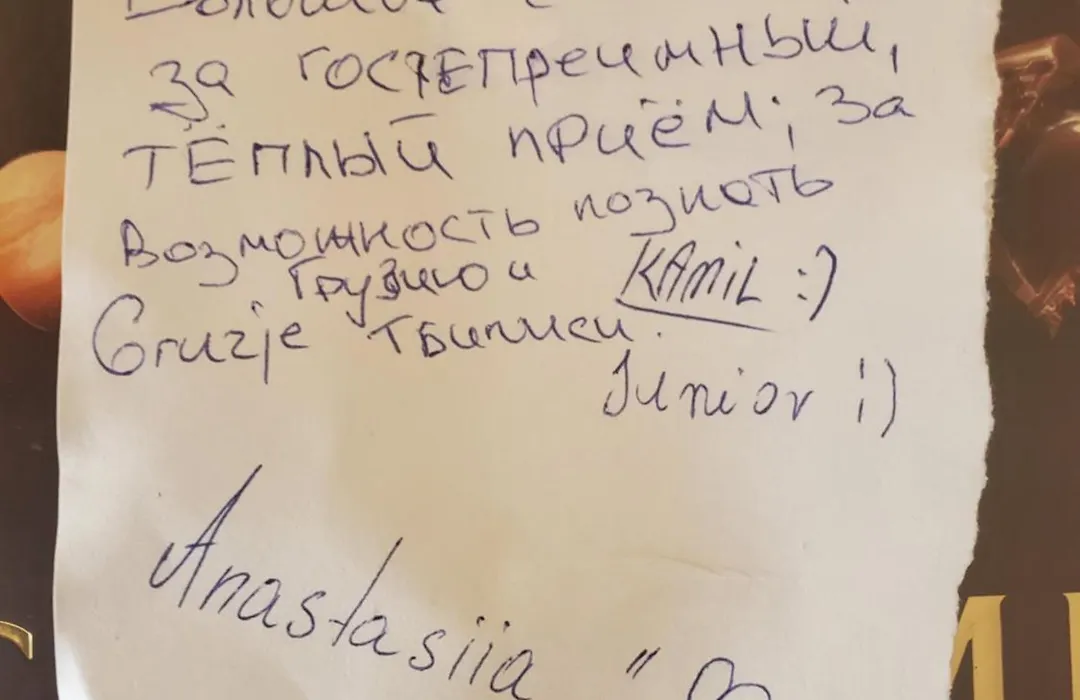 за гостепреимный,
тёплый приём; за
Возможность познать
Грузию и KAMIL :)
Gruzje Тбилиси.
Junior ;)
Anastasiia "